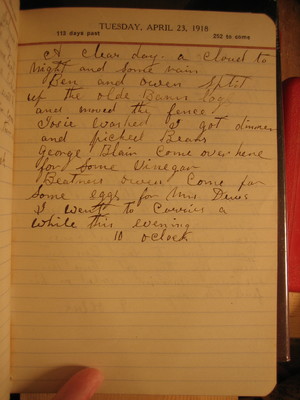 TUESDAY, APRIL 23, 1918
113 days past 252 to come
A clear day. a cloud to
night and some rain
Ben and Owen split
up the olde Barn logs
and moved the fence
Josie washed I got dinner
and picked Beans
George Blair Come over here
for some Vinegar
Beatrice Owen Come for
Some eggs for Mrs.
I went to Carries a
while this evening
10 oclock